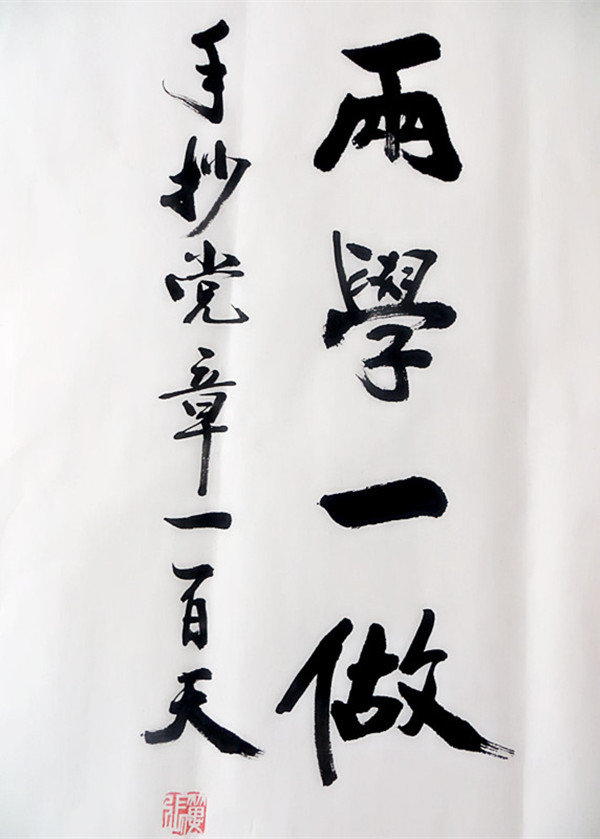 兩學一做
手抄党章一百天